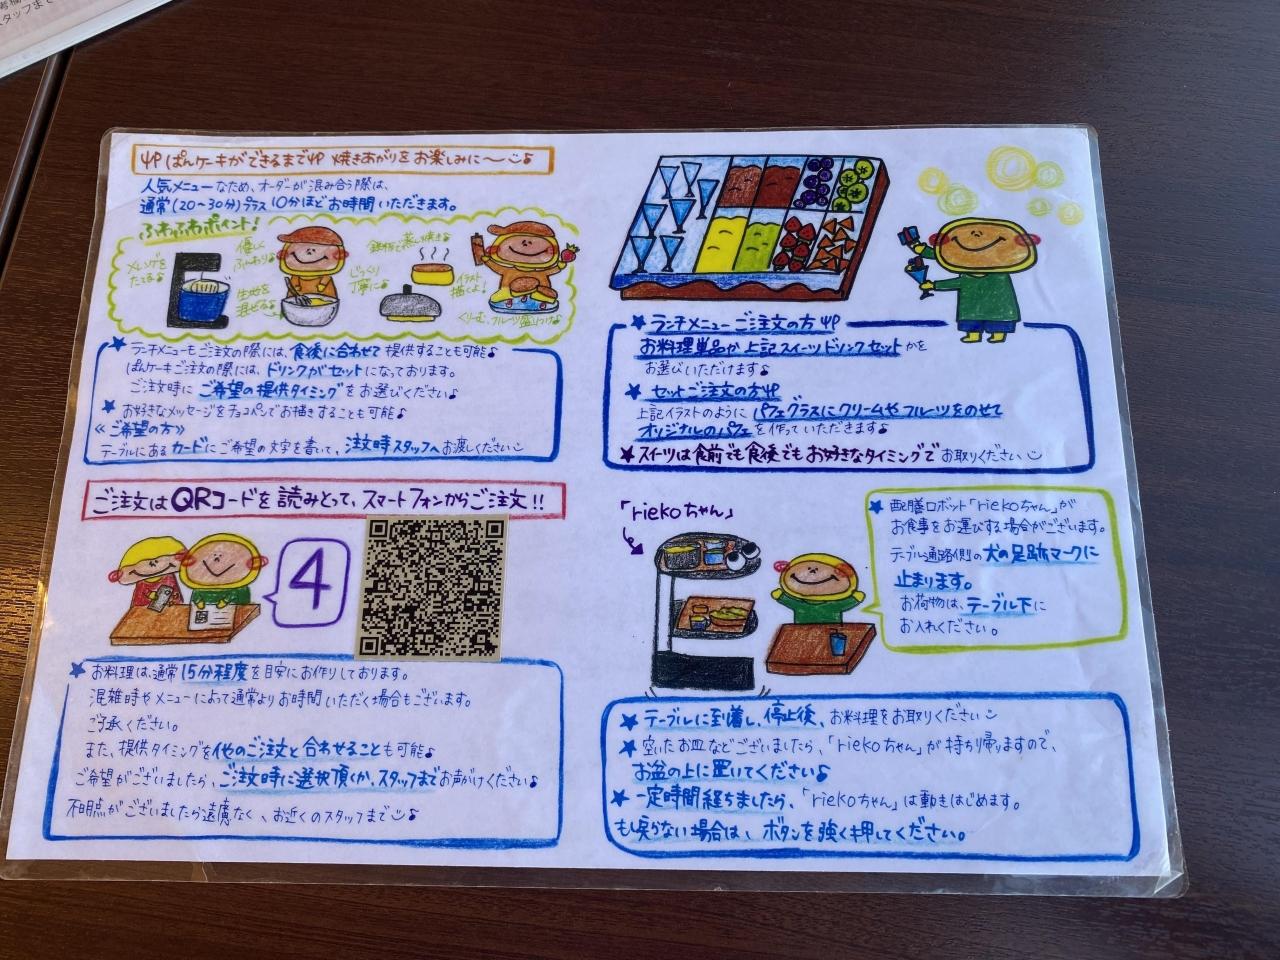 ぱんケーキができるまで 焼きあがりをお楽しみに〜♪
人気メニューなため、オーダーが混み合う際は、
通常(20〜30分)プラス10分ほどお時間いただきます。
ふわふわポイント!
メレンゲを
たてる♪
優しく
ふんわり♪
生地を
混ぜる♪
じっくり
丁寧に♪
鉄板で蒸し焼き♪
イラスト
描くよ!
くりーむ、フルーツ盛りつけ♪
★ランチメニューもご注文の際には、食後に合わせて提供することも可能♪
ぱんケーキご注文の際には、ドリンクがセットになっております。
ご注文時にご希望の提供タイミングをお選びください♪
★お好きなメッセージをチョコペンでお描きすることも可能♪
≪ご希望の方≫
テーブルにあるカードにご希望の文字を書いて、注文時スタッフへお渡しください
ご注文はQRコードを読みとって、スマートフォンからご注文!!
4
★お料理は、通常15分程度を目安にお作りしております。
混雑時やメニューによって通常よりお時間いただく場合もございます。
ご了承ください。
また、提供タイミングを他のご注文と合わせることも可能♪
ご希望がございましたら、ご注文時に選択頂くか、スタッフまでお声がけください♪
不明点がございましたら遠慮なく、お近くのスタッフまで♪
★ランチメニューご注文の方
お料理単品か上記スイーツドリンクセットかを
お選びいただけます♪
★セットご注文の方
上記イラストのようにパフェグラスにクリームやフルーツをのせて
オリジナルのパフェを作っていただきます♪
★スイーツは食前でも食後でもお好きなタイミングでお取りください
「riekoちゃん」
★配膳ロボット「riekoちゃん」が
お食事をお運びする場合がございます。
テーブル通路側の犬の足跡マークに
止まります。
お荷物は、テーブル下に
お入れください。
★テーブルに到着し、停止後、お料理をお取りください
★空いたお皿などございましたら、「riekoちゃん」が持ち帰りますので、
お盆の上に置いてください♪
★一定時間経ちましたら、「riekoちゃん」は動きはじめます。
もし戻らない場合は、ボタンを強く押してください。